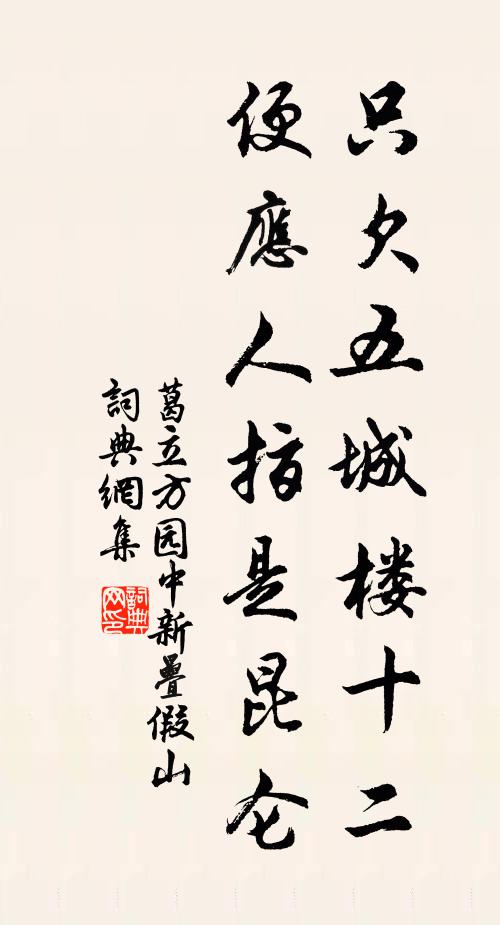 只欠五城楼十二
便應人指是昆仑
葛立方园中新疊假山
詞典網集
詞典网印